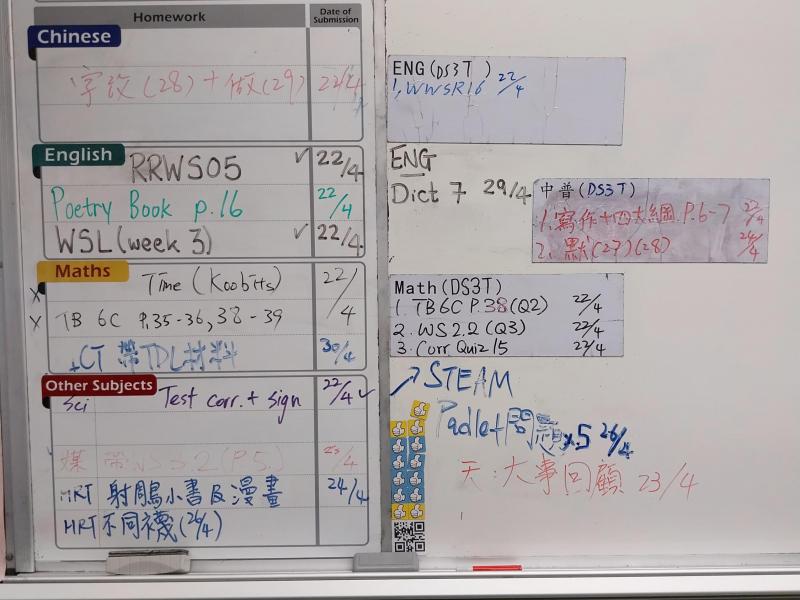 Homework
Date of Submission
Chinese
字改(28)+做(29) 22/4
English
RRWS05 ✓ 22/4
Poetry Book p.16 22/4
WSL(week 3) ✓ 22/4
Maths
x Time (Koobits) 22/4
x TB 6C P.35-36, 38-39
CT 帶TDL材料 30/4
Other Subjects
Sci Test corr. + sign 22/4 ✓
媒 帶 2.2(P.5.)
HRT 射鵰小書及漫畫 24/4
HRT不同襪(26/4)
ENG(DS3T)
1. WWSR16 22/4
ENG
Dict 7 29/4
中普(DS3T)
1. 寫作+四大綱 P.6-7 22/4
2. 默(27)(28) 24/4
Math(DS3T)
1. TB 6C P.38(Q2) 22/4
2. WS 2.2 (Q3) 22/4
3. Corr Quiz 15 23/4
→ STEAM
Padlet 問題 x5 26/4
天:大事回顧 23/4